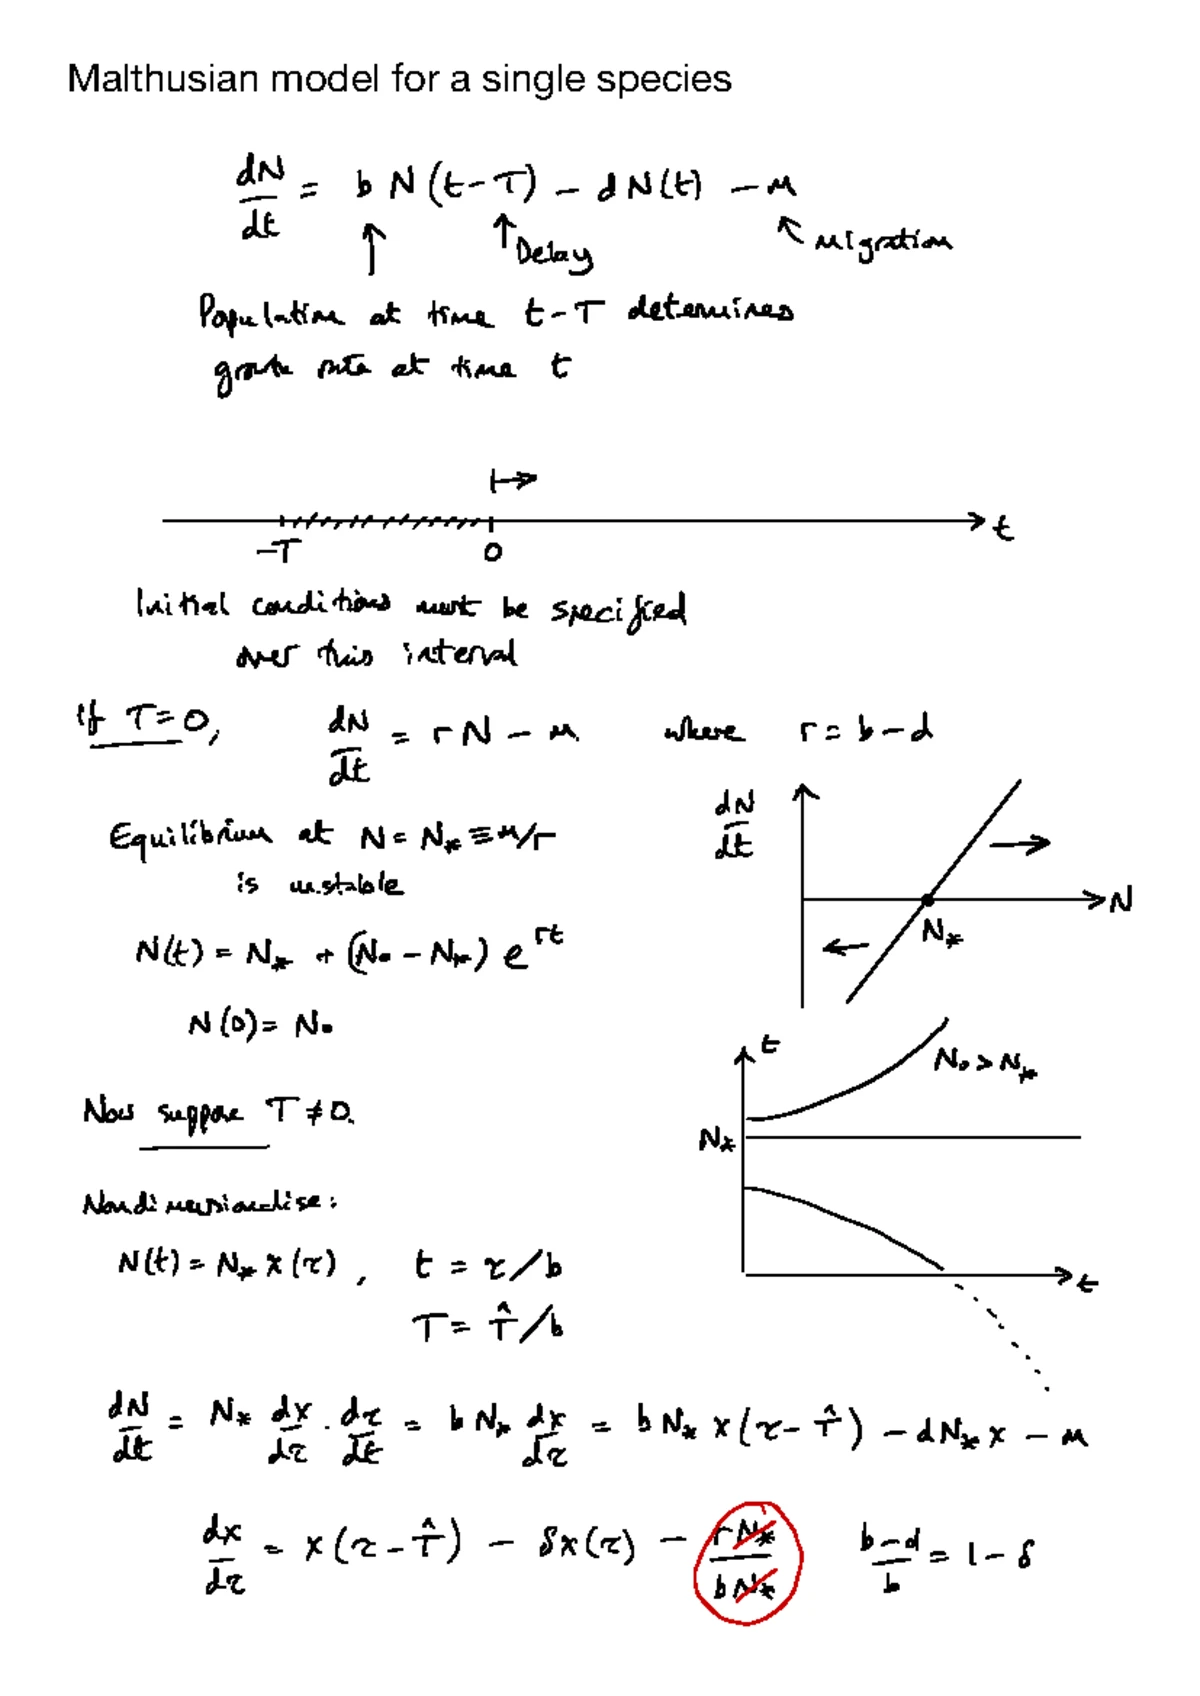 Malthusian model for a single species
dN/dt = b N(t-T) - d N(t) - μ
↑ ↑ Delay ↖ migration
Population at time t-T determines
growth rate at time t
↦
-T 0 t
Initial conditions must be specified
over this interval
If T=0, dN/dt = rN - μ where r = b-d
Equilibrium at N = N* ≡ μ/r
is unstable
dN/dt → N
← N*
N(t) = N* + (N0 - N*) e^{rt}
N(0) = N0
t N0 > N*
Now suppose T ≠ 0.
N*
Nondimensionalise:
N(t) = N* x(τ), t = τ/b
t
T = T̂/b
dN/dt = N* dx/dτ . dτ/dt = b N* dx/dτ = b N* x(τ - T̂) - d N* x - μ
dx/dτ = x(τ - T̂) - δx(τ) - rN*/bN* (b-d)/b = 1 - δ